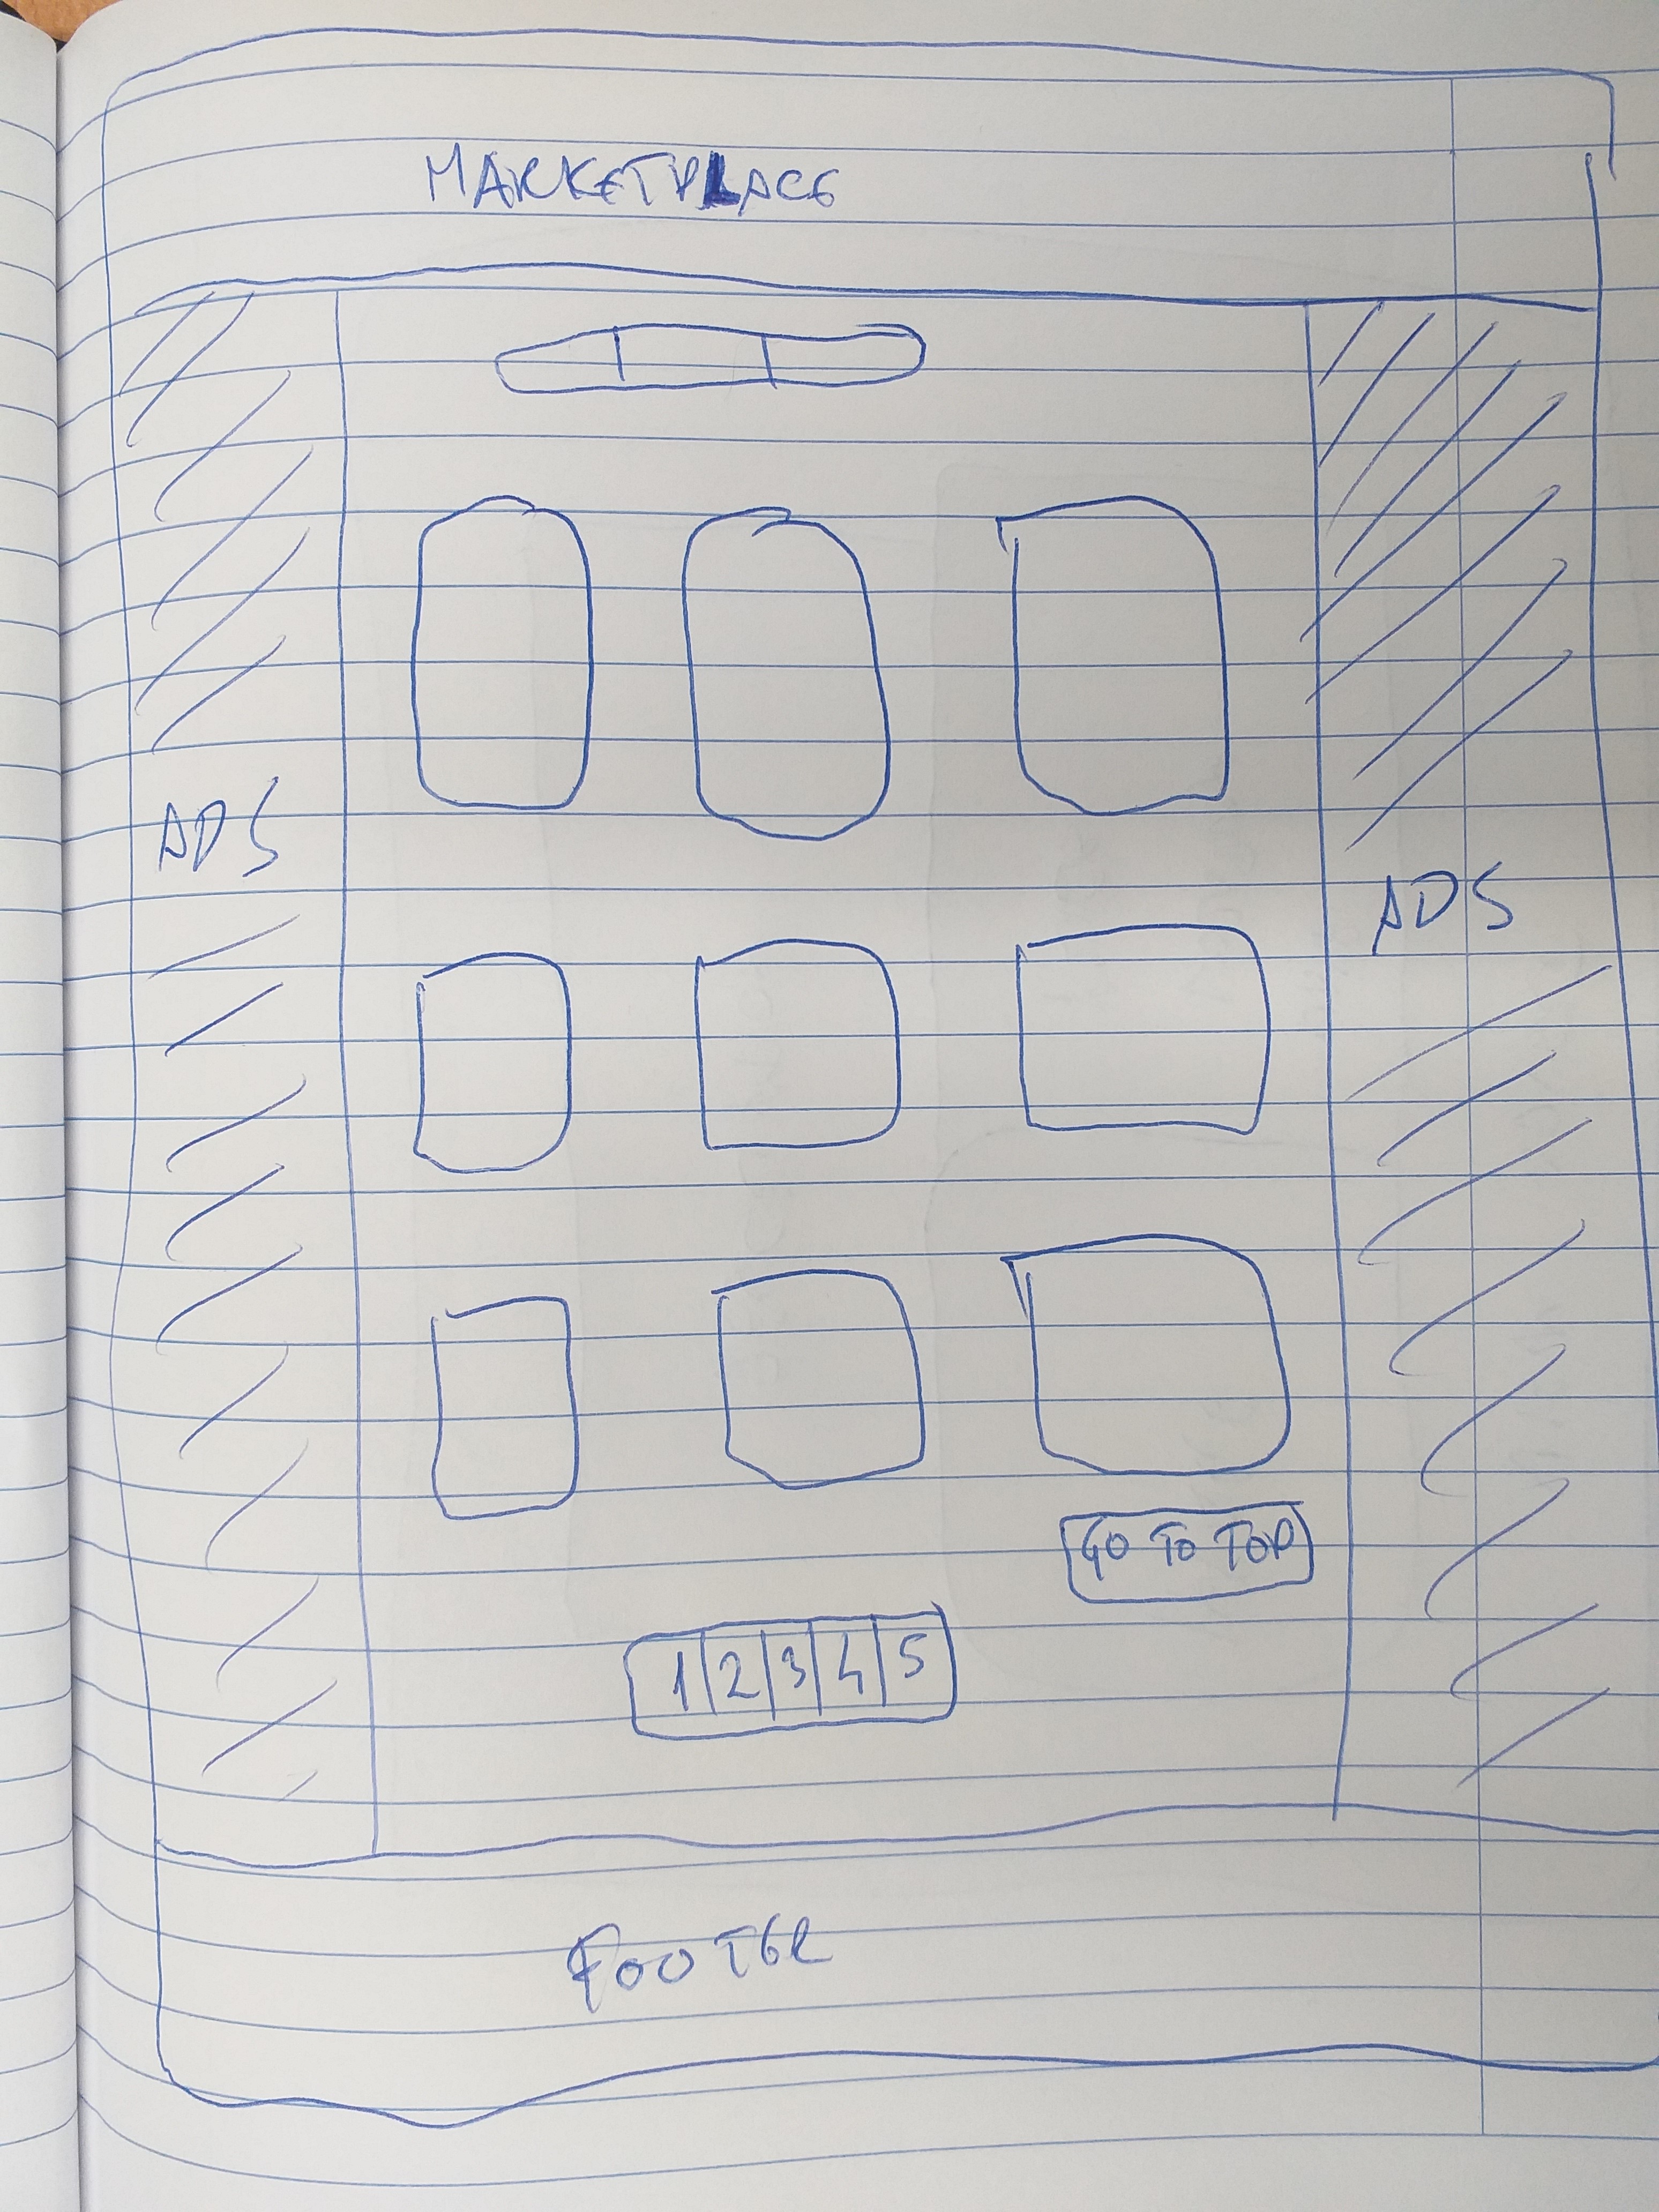 MARKETPLACE
ADS
ADS
GO TO TOP
1 2 3 4 5
FOOTER